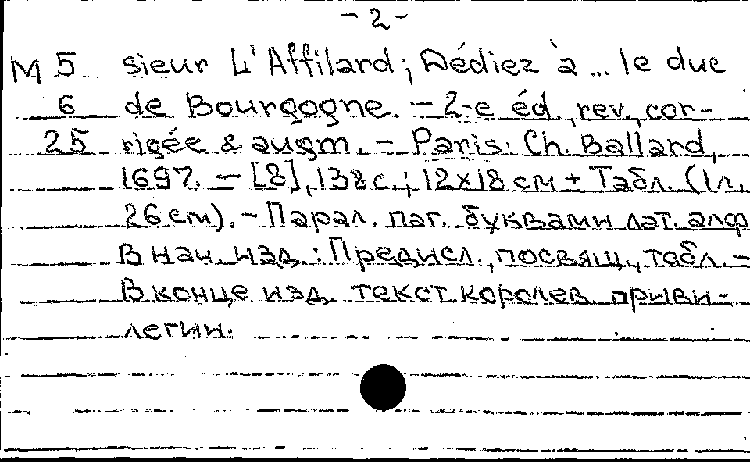 -2-
M 5 sieur L'Affilard; Dédiez à ... le duc
6 de Bourgogne. - 2-e éd., rev., cor-
25 rigée & augm. - Paris: Ch. Ballard,
1697. - [8], 138 с.; 12x18 см + Табл. (1л.,
26 см). - Парал. паг. буквами лат. алф
В нач. изд.: Предисл., посвящ., табл. -
В конце изд. текст королев. приви-
легии.